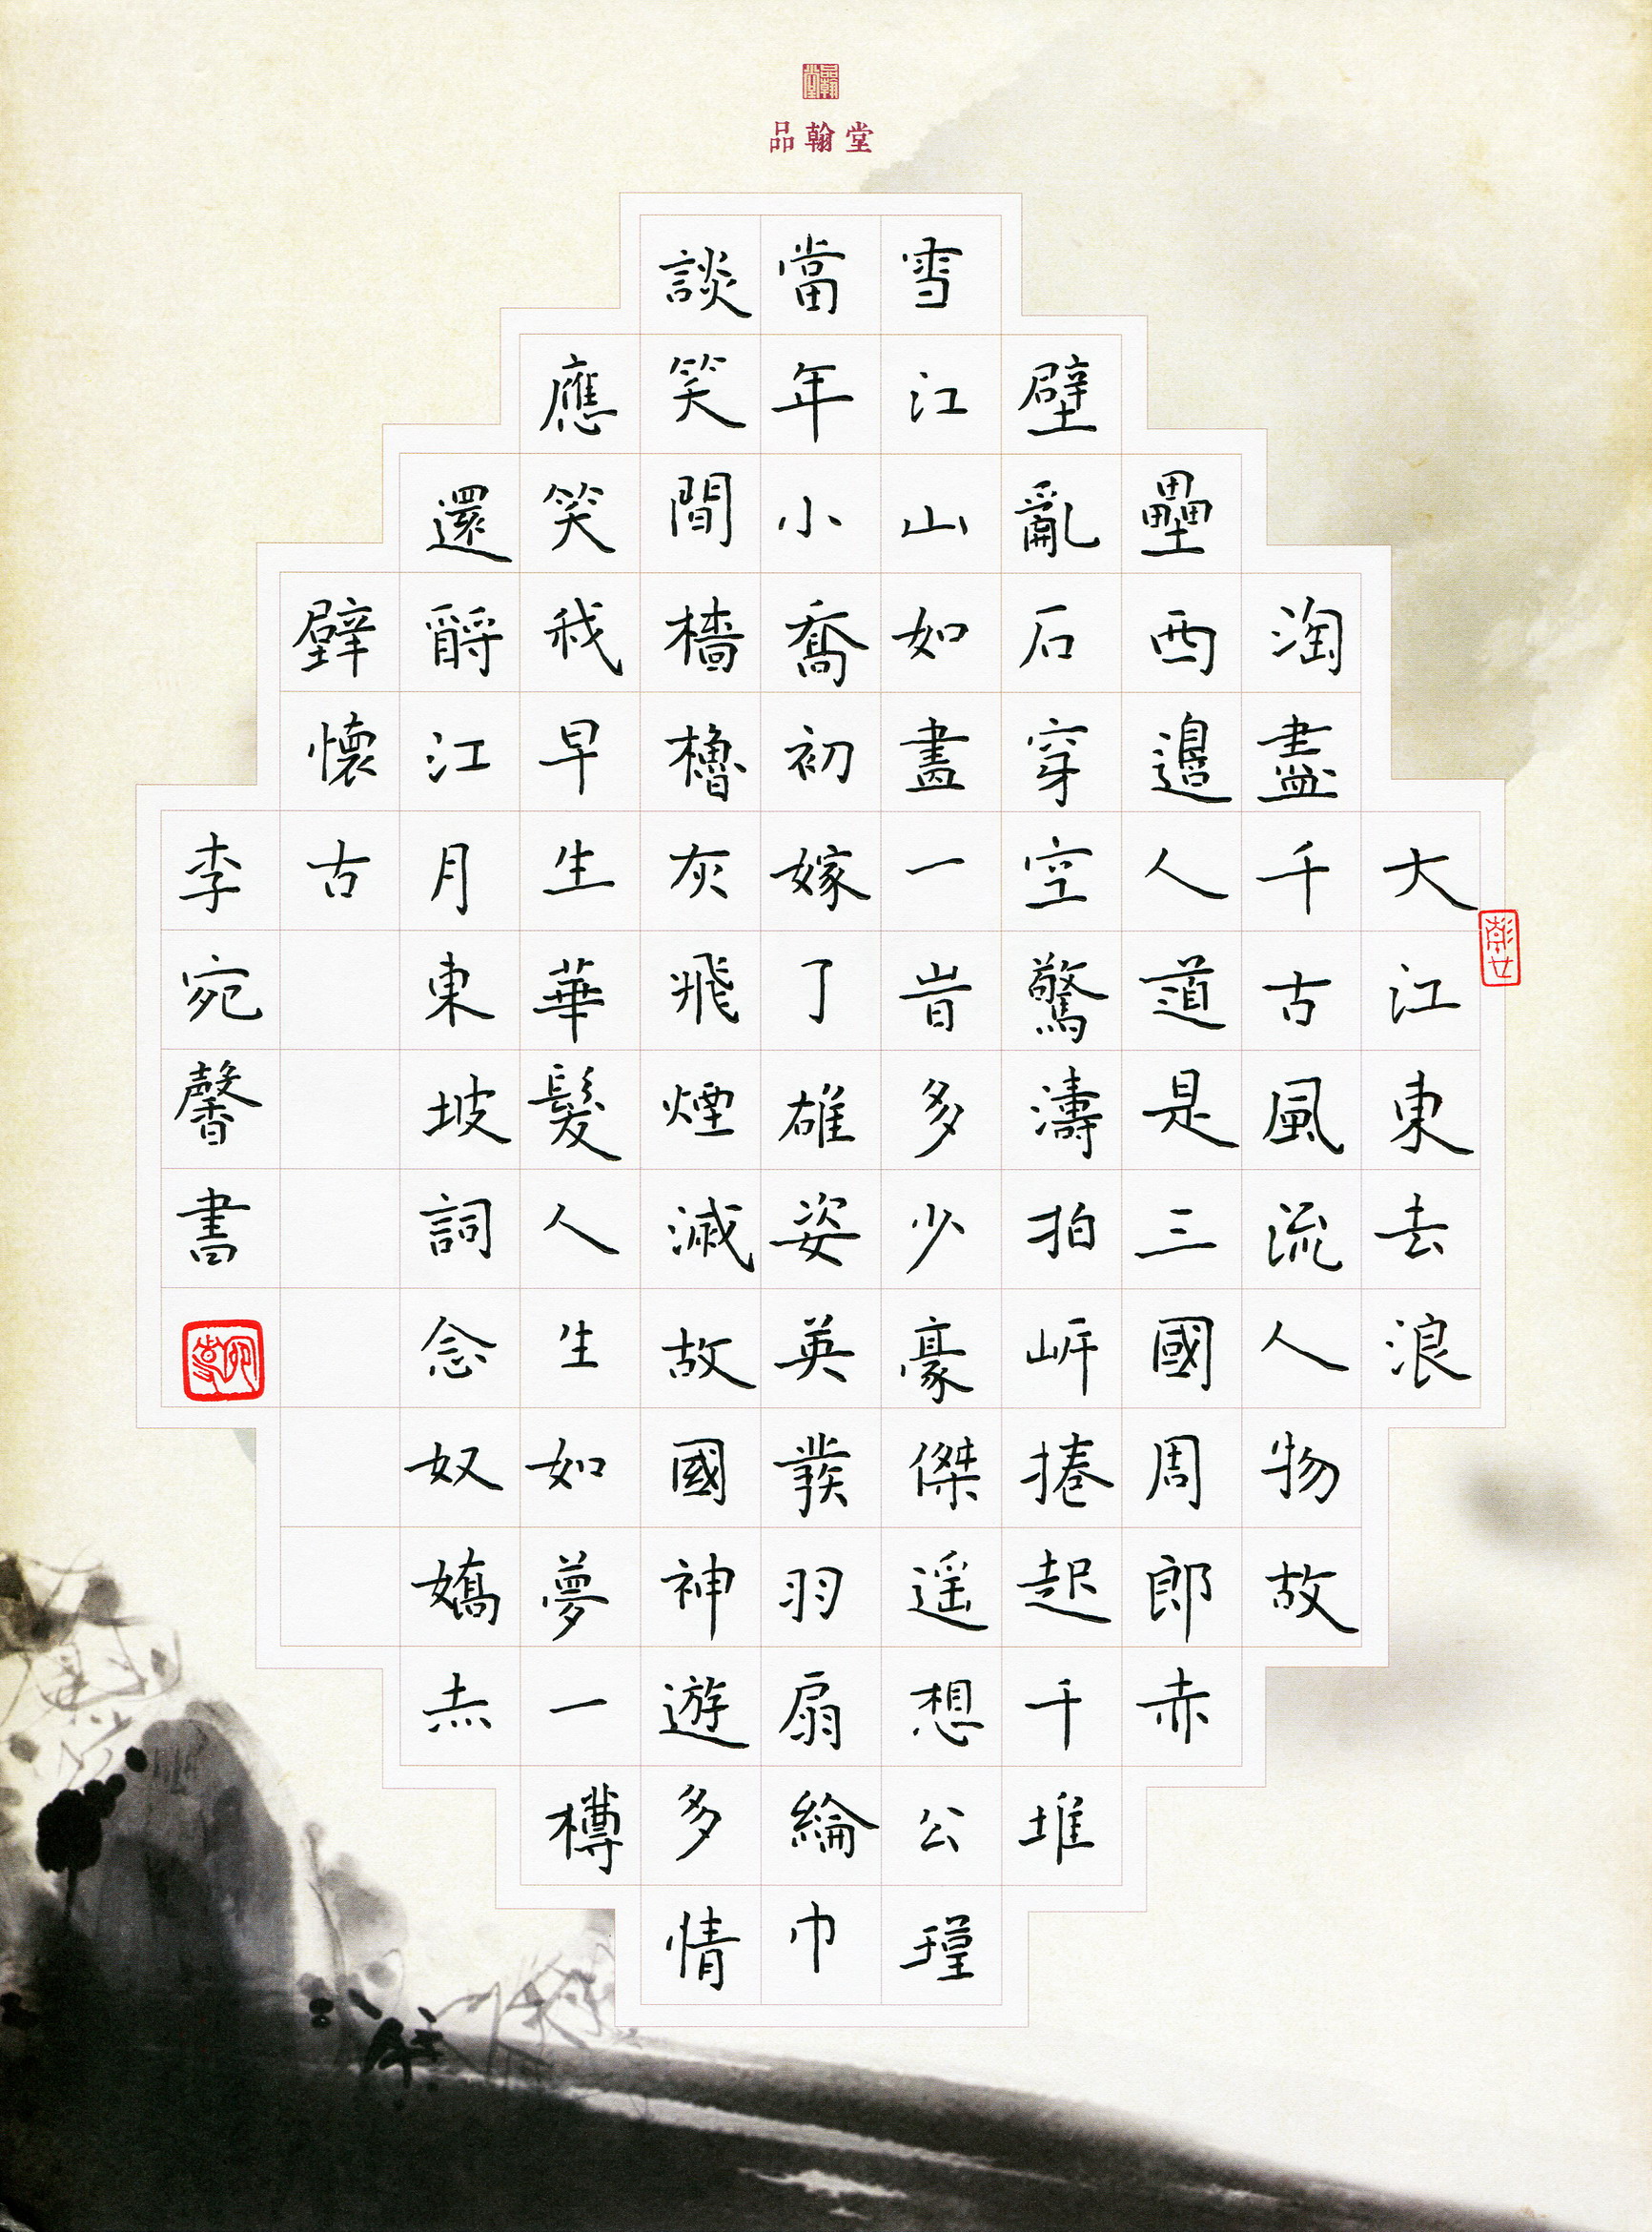 品翰堂
大江東去浪
淘盡千古風流人物故
壘西邊人道是三國周郎赤
壁亂石穿空驚濤拍岍捲起千堆
雪江山如畫一旹多少豪傑遥想公瑾
當年小喬初嫁了雄姿英發羽扇綸巾
談笑間檣櫓灰飛煙滅故國神遊多情
應笑我早生華髮人生如夢一樽
還酹江月東坡詞念奴嬌赤
壁懷古
李宛馨書